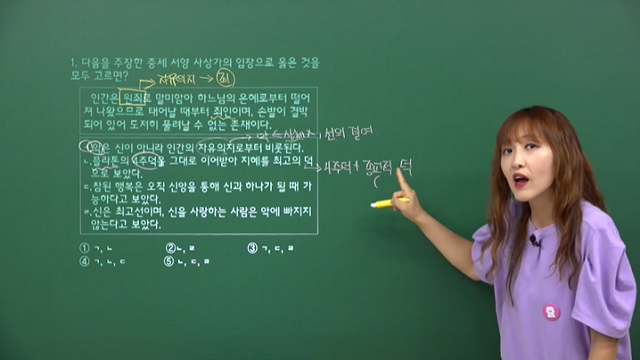 1. 다음을 주장한 중세 서양 사상가의 입장으로 옳은 것을
모두 고르면?
자유의지 → 죄
인간은 원죄로 말미암아 하느님의 은혜로부터 떨어
져 나왔으므로 태어날 때부터 죄인이며, 손발이 결박
되어 있어 도저히 풀려날 수 없는 존재이다.
악 실체 x, 선의 결여
ㄱ. 악은 신이 아니라 인간의 자유의지로부터 비롯된다.
ㄴ. 플라톤의 4주덕을 그대로 이어받아 지혜를 최고의 덕
으로 보았다.
→ 4주덕 + 종교적 덕
ㄷ. 참된 행복은 오직 신앙을 통해 신과 하나가 될 때 가
능하다고 보았다.
ㄹ. 신은 최고선이며, 신을 사랑하는 사람은 악에 빠지지
않는다고 보았다.
① ㄱ, ㄴ ② ㄴ, ㄹ ③ ㄱ, ㄷ, ㄹ
④ ㄱ, ㄴ, ㄷ ⑤ ㄴ, ㄷ, ㄹ